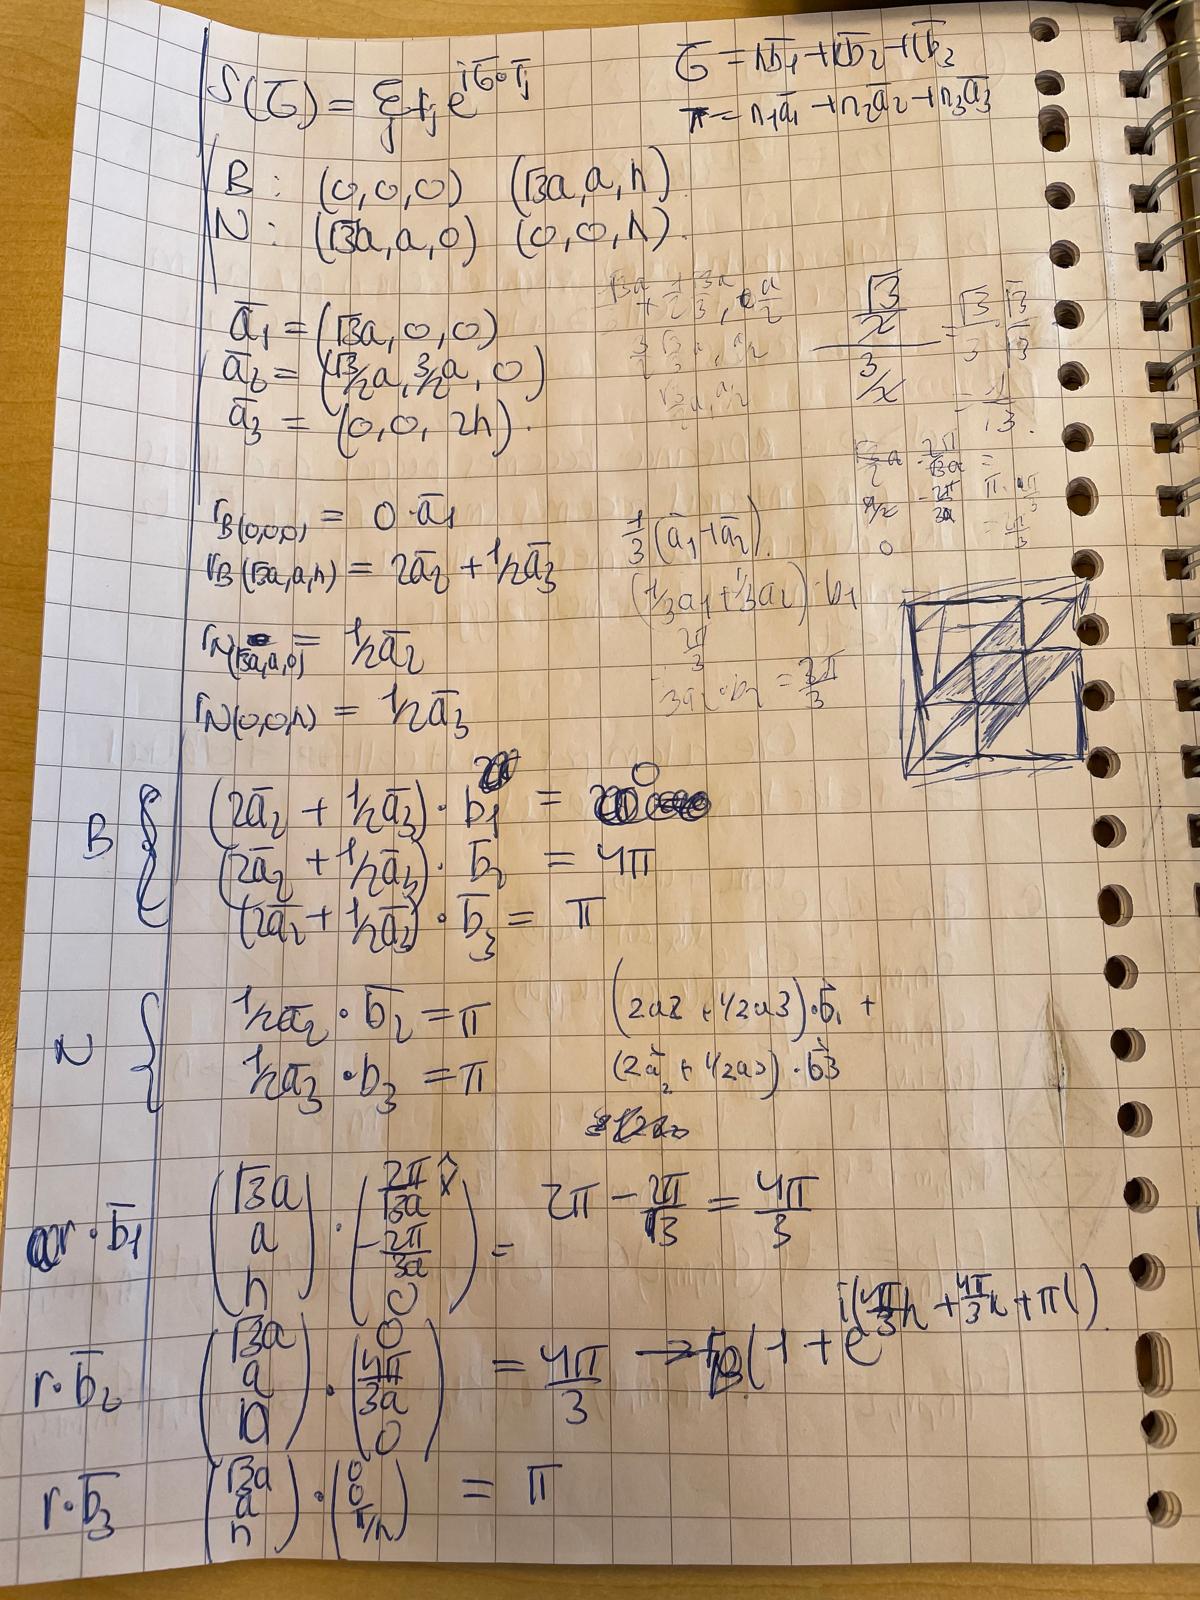 S(G̅) = Σ_j f_j e^{iG̅·r̅_j}
G̅ = hb̅₁ + kb̅₂ + lb̅₃
r̅ = n₁a̅₁ + n₂a̅₂ + n₃a̅₃
B : (0,0,0) (√3a, a, h).
N : (√3a, a, 0) (0, 0, h).
a̅₁ = (√3a, 0, 0)
a̅₂ = (√3/2a, 3/2a, 0)
a̅₃ = (0, 0, 2h).
r_B(0,0,0) = 0·a̅₁
r_B(√3a,a,h) = 2a̅₂ + 1/2a̅₃
1/3(a̅₁+a̅₂).
(1/3a₁+1/3a₂)·b₁
2π/3
r_N(√3a,a,0) = 1/2a̅₂
r_N(0,0,h) = 1/2a̅₃
B { (2a̅₂ + 1/2a̅₃)·b̅₁ = 0
(2a̅₂ + 1/2a̅₃)·b̅₂ = 4π
(2a̅₂ + 1/2a̅₃)·b̅₃ = π
N { 1/2a̅₂·b̅₂ = π
1/2a̅₃·b₃ = π
(2a2 + 1/2a3)·b̅₁ +
(2a₂ + 1/2a3)·b3
r·b̅₁ (√3a a h)·(2π/√3a -2π/3a 0) = 2π - 2π/√3 = 4π/3
r·b̅₂ (√3a a h)·(0 4π/3a 0) = 4π/3 → f_B(1 + e^{i(4π/3h + 4π/3k + πl)}
r·b̅₃ (√3a a h)·(0 0 π/h) = π